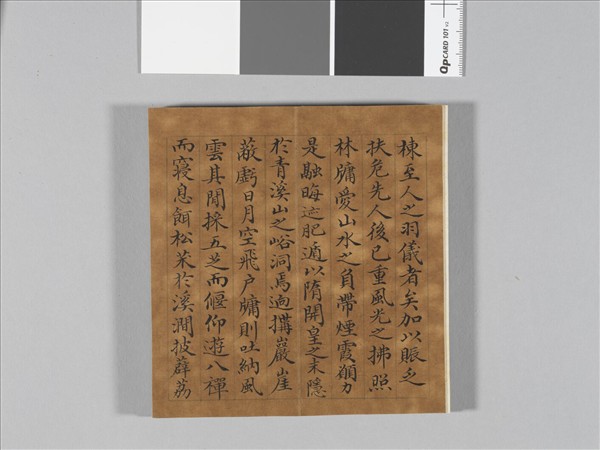 棟至人之羽儀者矣加以賑乏
扶危先人後己重風光之拂照
林牖愛山水之負帶煙霞願力
是融晦迹肥遁以隋開皇之末隱
於青溪山之峪洞焉迥構巖崖
蔽虧日月空飛戶牖則吐納風
雲其閒採五芝而偃仰遊八禪
而寢息餌松茱於溪澗披薜荔
QPCARD 101 v2